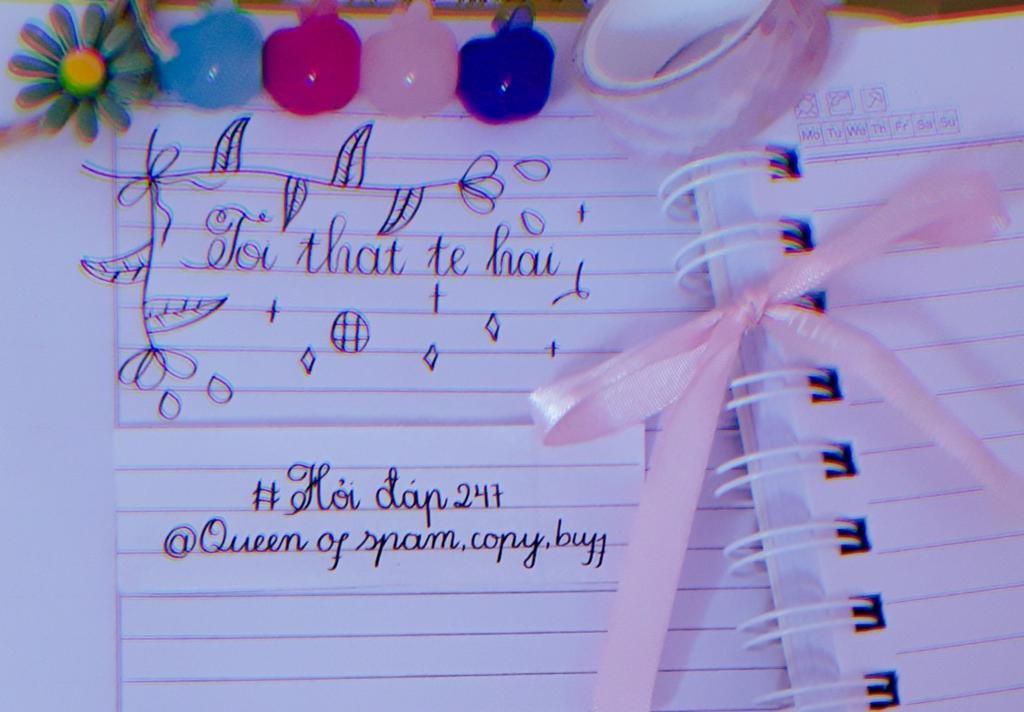 Mo Tu We Th Fr Sa Su
Toi that te hai
#Hỏi đáp 247
@Queen of spam,copy,buff